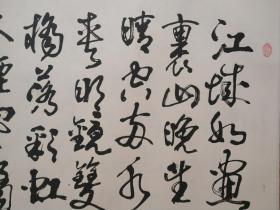 江城如畫
裏山晚望
晴空兩水
夾明鏡雙
橋落彩虹